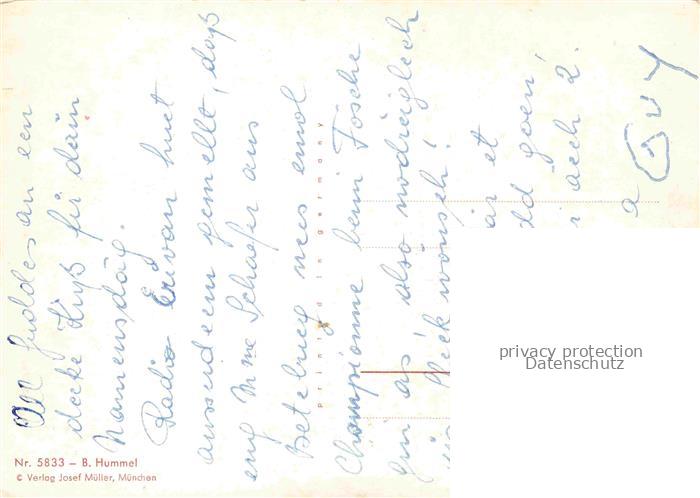 All Guddes an een
decke Kuß fir däin
Namensdag.
Radio Erivan huet
ausserdeem gemellt, daß
eng Mme Schaefer aus
Betebuerg nees emol
Championne beim Fösche
gin as, also nodréiglech
Gléck wünsch!
är et
dd goen,
aech 2.
a Guy
printed in germany
Nr. 5833 – B. Hummel
© Verlag Josef Müller, München
privacy protection
Datenschutz